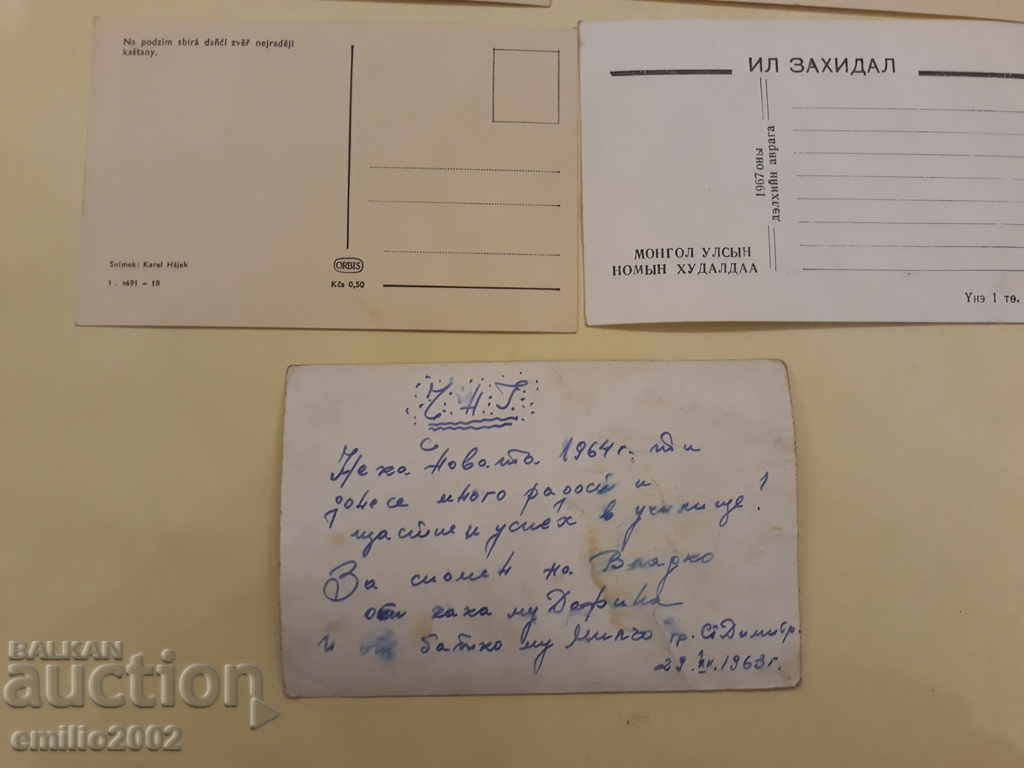 Na podzim sbírá daňčí zvěř nejraději
kaštany.
Snímek: Karel Hájek
ORBIS
Kčs 0,50
ИЛ ЗАХИДАЛ
1967 оны
дэлхийн аврага
МОНГОЛ УЛСЫН
НОМЫН ХУДАЛДАА
Үнэ 1 тө.
Ч Н Г
Нека Новата 1964 г. ти
донесе много радост и
щастие и успех в училище!
За спомен на Владко
от кака му Дафина
и от батко му Минчо гр. Ст. Димитр.
29.XII.1963 г.
BALKAN
auction
emilio2002